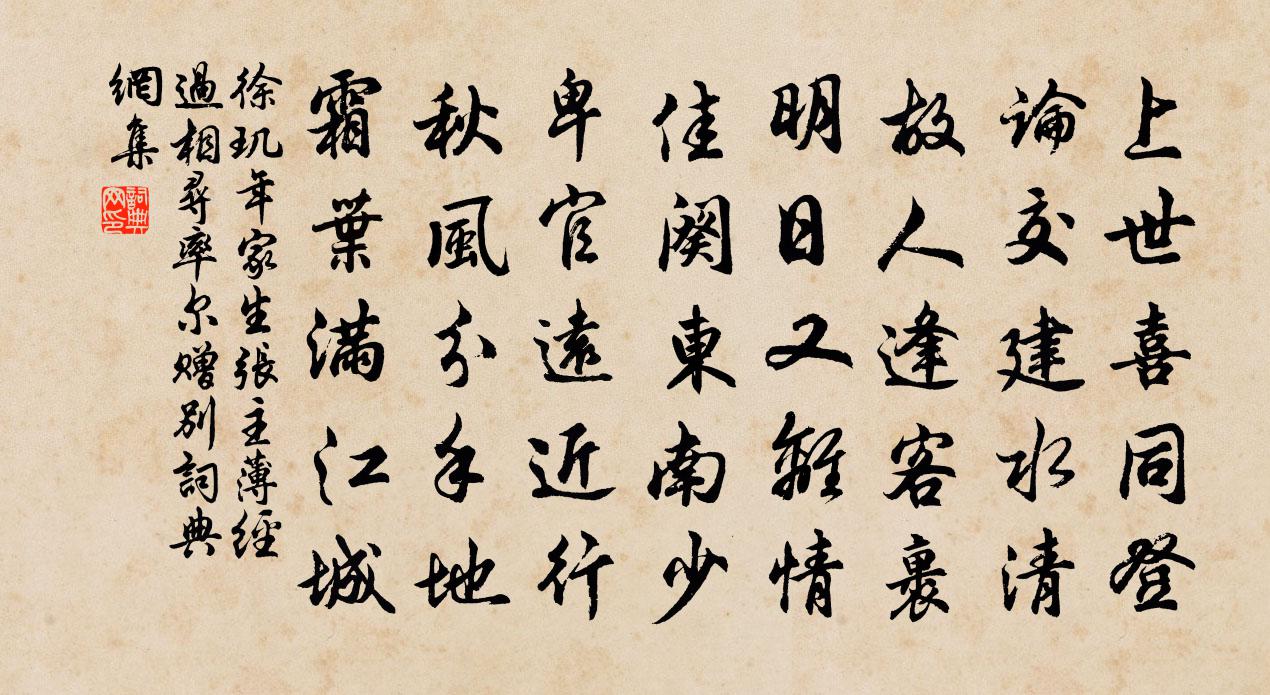 上世喜同登
論交建水清
故人逢客裏
明日又離情
佳闕東南少
卑官遠近行
秋風分手地
霜葉滿江城
徐玑年家生張主薄經
過相尋率尔赠别詞典
網集
詞典
网印